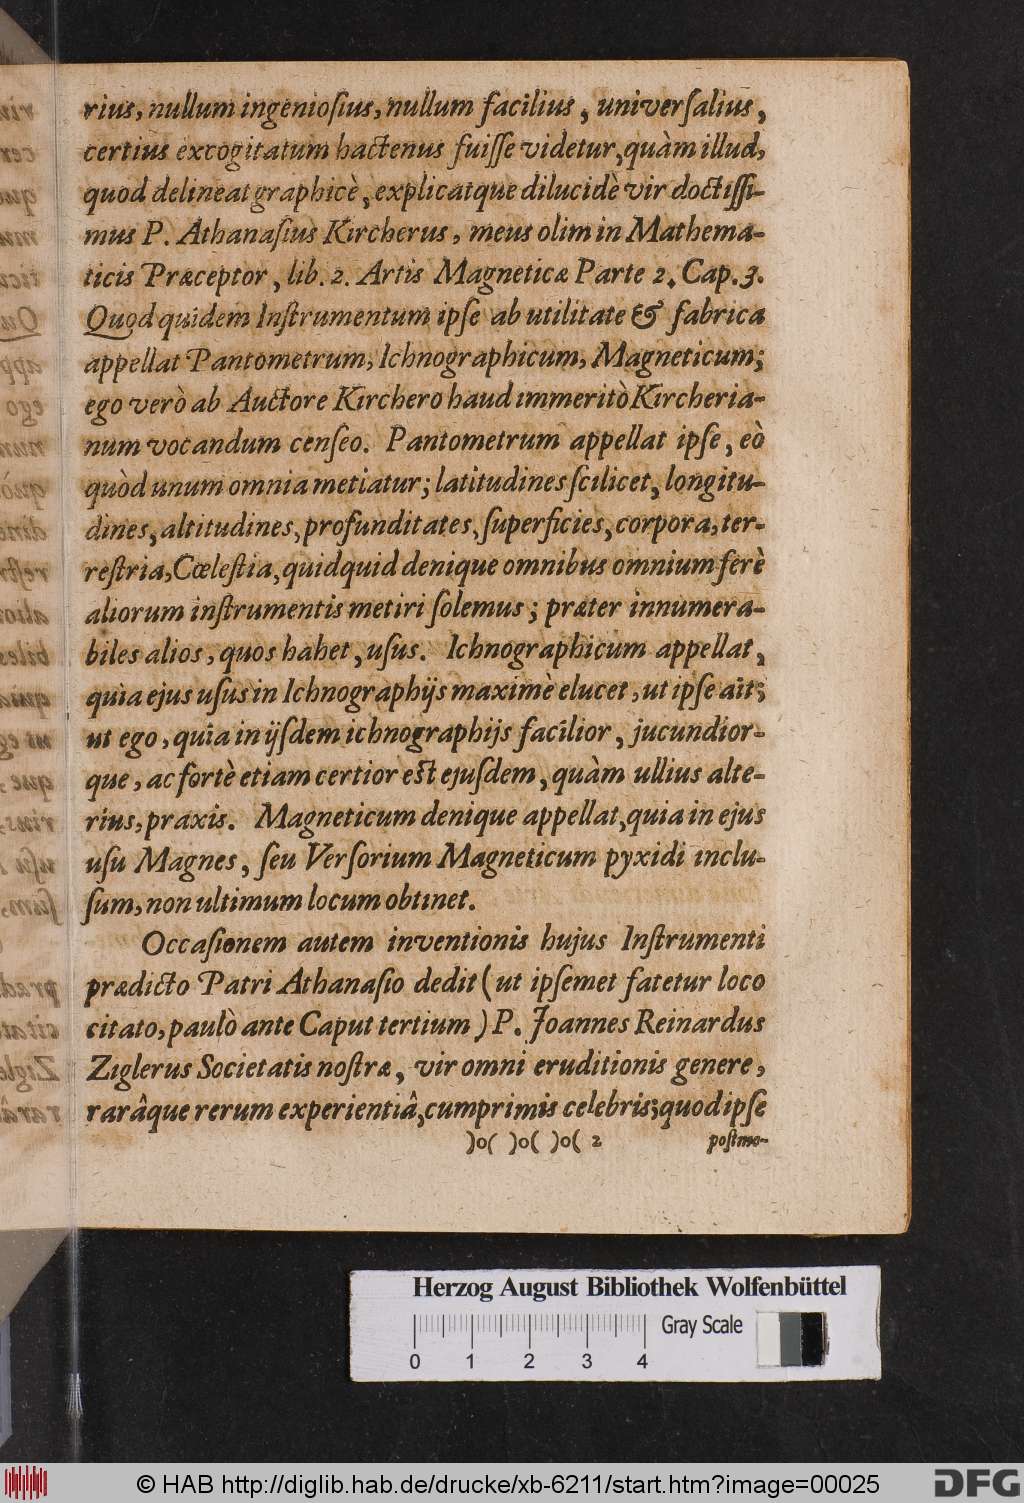 rius, nullum ingenioſius, nullum facilius, univerſalius,
certius excogitatum hactenus fuiſſe videtur, quàm illud,
quod delineat graphicè, explicatque dilucidè vir doctiſſi-
mus P. Athanaſius Kircherus, meus olim in Mathema-
ticis Præceptor, lib. 2. Artis Magneticæ Parte 2. Cap. 3.
Quod quidem Inſtrumentum ipſe ab utilitate & fabrica
appellat Pantometrum, Ichnographicum, Magneticum;
ego verò ab Auctore Kirchero haud immeritò Kircheria-
num vocandum cenſeo. Pantometrum appellat ipſe, eò
quòd unum omnia metiatur; latitudines ſcilicet, longitu-
dines, altitudines, profunditates, ſuperficies, corpora, ter-
reſtria, Cœleſtia, quidquid denique omnibus omnium ferè
aliorum inſtrumentis metiri ſolemus; præter innumera-
biles alios, quos habet, uſus. Ichnographicum appellat,
quia ejus uſus in Ichnographijs maximè elucet, ut ipſe ait;
ut ego, quia in ijſdem ichnographijs facilior, jucundior-
que, ac fortè etiam certior eſt ejuſdem, quàm ullius alte-
rius, praxis. Magneticum denique appellat, quia in ejus
uſu Magnes, ſeu Verſorium Magneticum pyxidi inclu-
ſum, non ultimum locum obtinet.
Occaſionem autem inventionis hujus Inſtrumenti
prædicto Patri Athanaſio dedit (ut ipſemet fatetur loco
citato, paulò ante Caput tertium) P. Joannes Reinardus
Ziglerus Societatis noſtræ, vir omni eruditionis genere,
rarâque rerum experientiâ, cumprimis celebris; quod ipſe
)o( )o( )o( 2 poſtmo-
Herzog August Bibliothek Wolfenbüttel
Gray Scale
0 1 2 3 4
© HAB http://diglib.hab.de/drucke/xb-6211/start.htm?image=00025
DFG